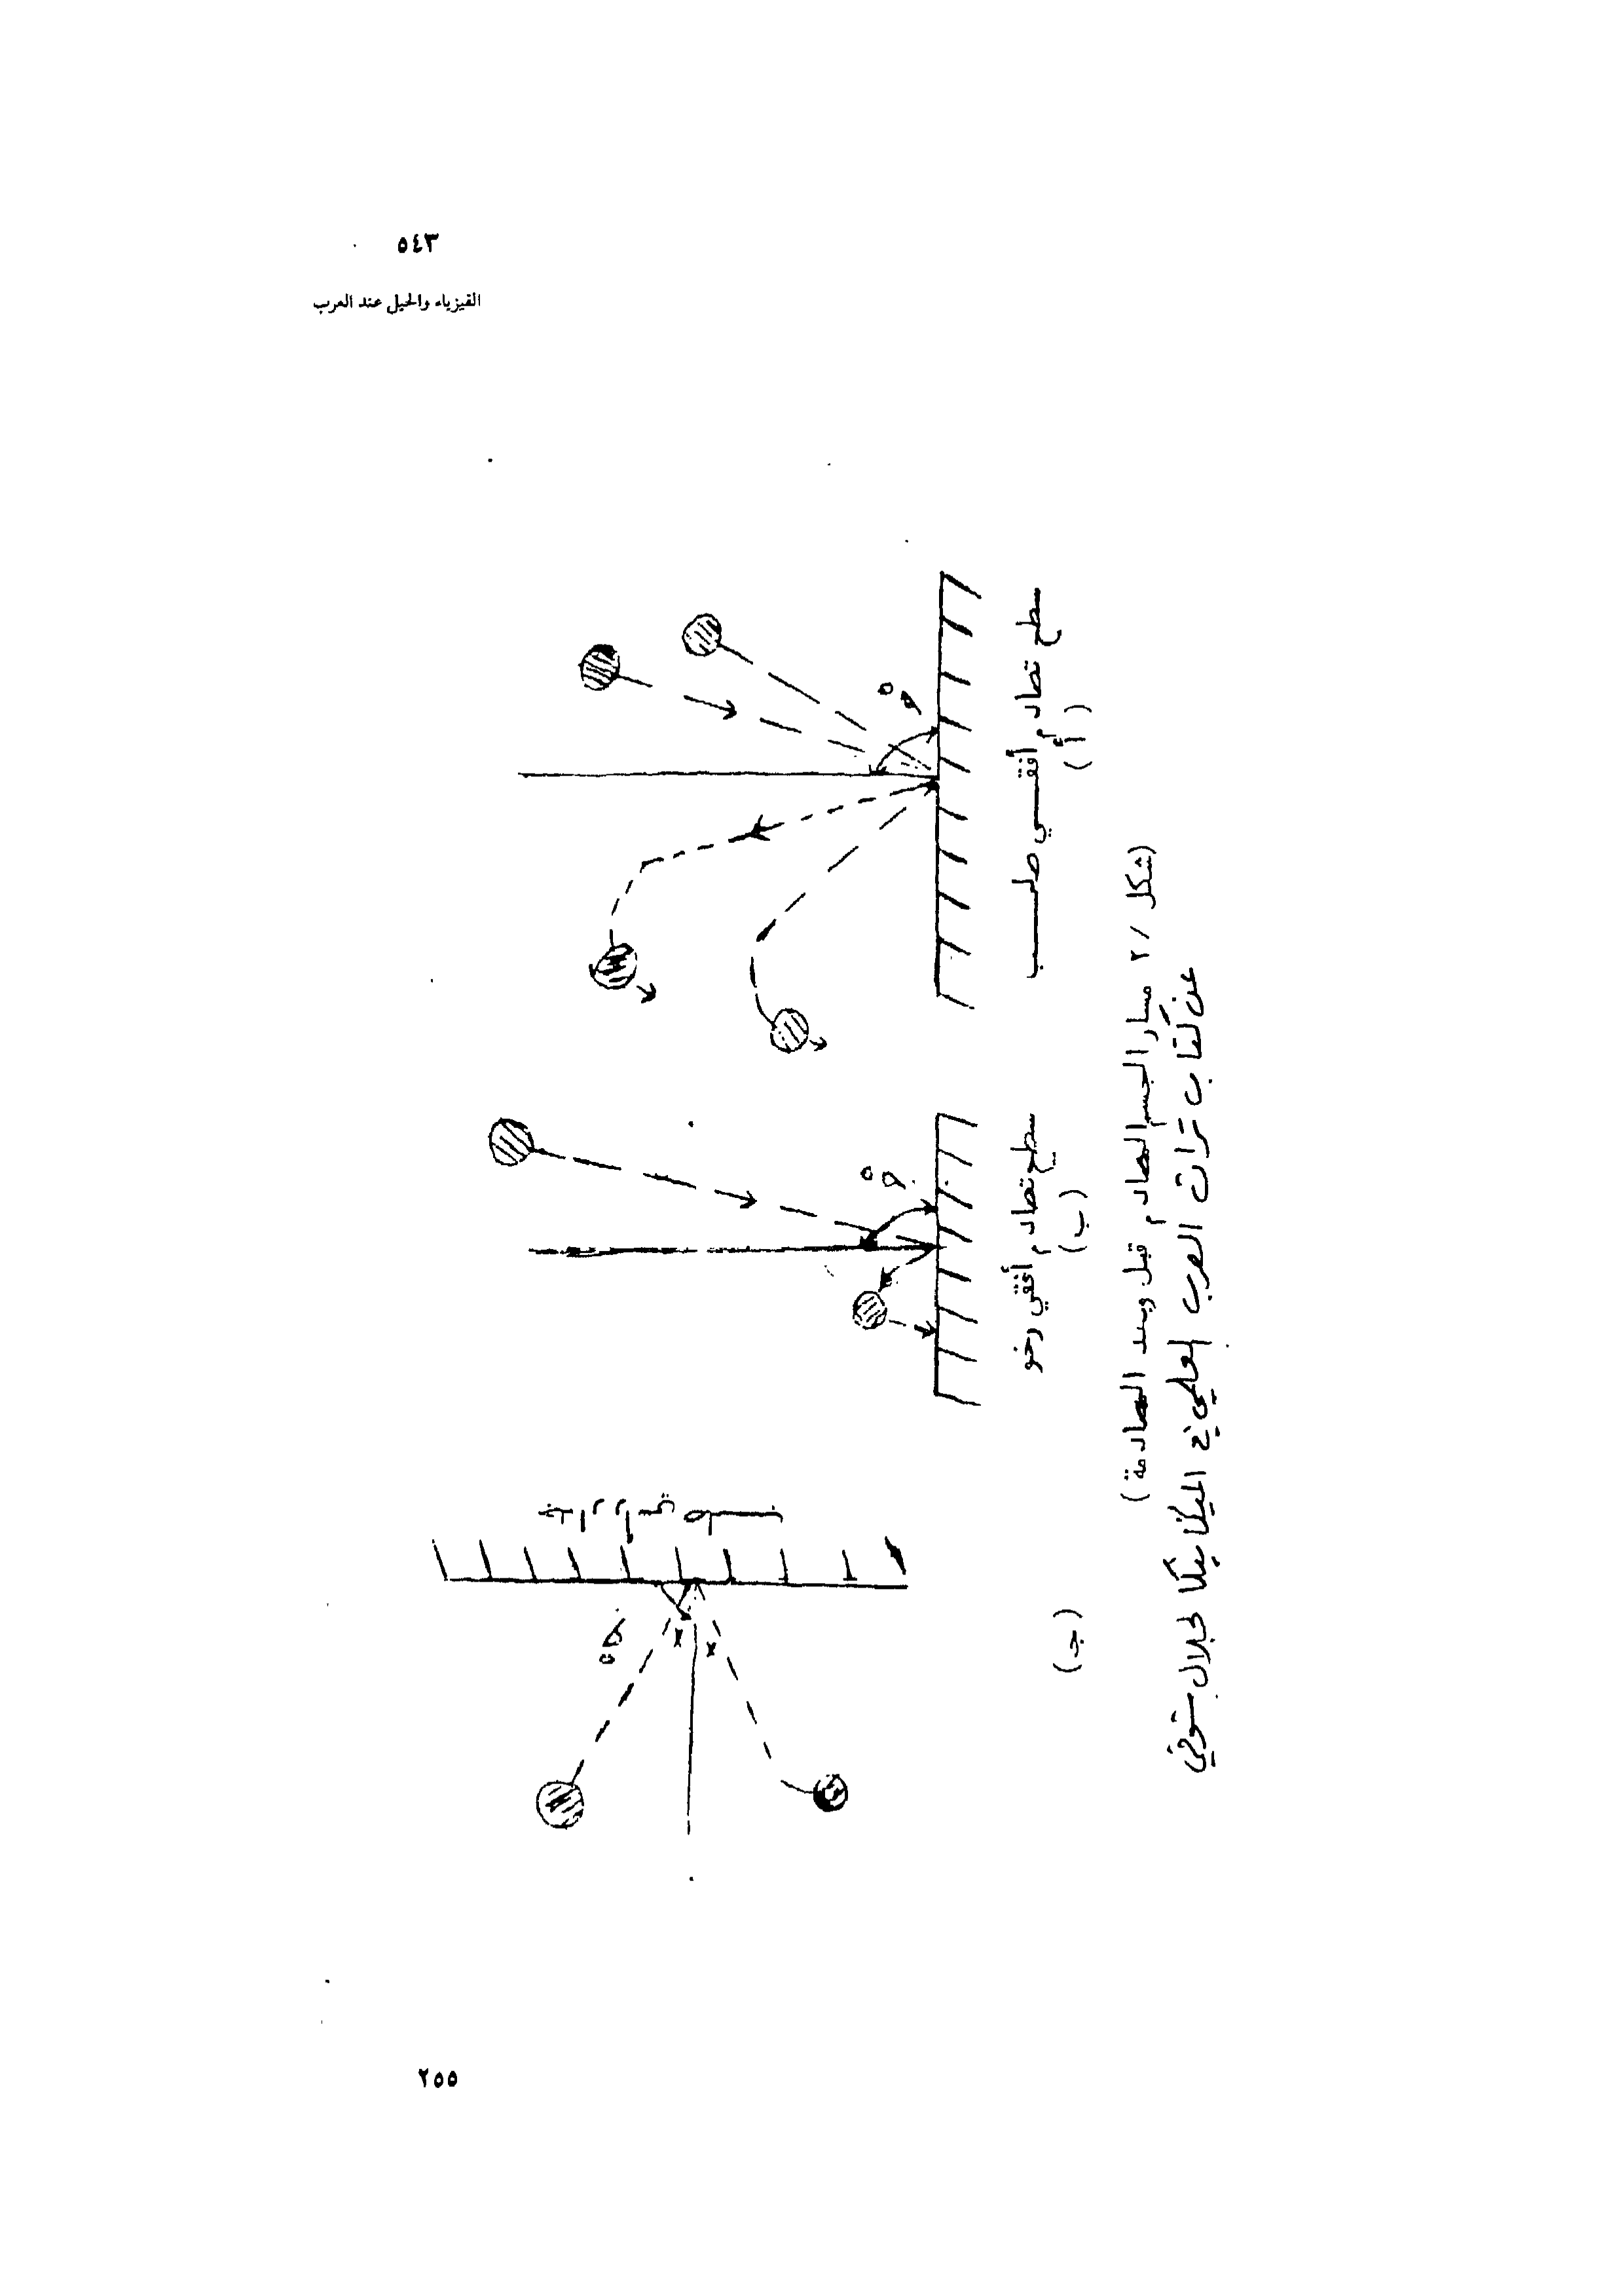 ٥٤٣
الفيزياء والحيل عند العرب
٩٠°
سطح تصادم أفقي صلب
(أ)
٩٠°
سطح تصادم أفقي رخو
(ب)
x x
(ج)
(شكل / ٢ مسار الجسم المصادم قبل وبعد المصادمة)
عن كتاب تراث العرب العلمي في الميكانيكا لجلال شوقي
٢٥٥